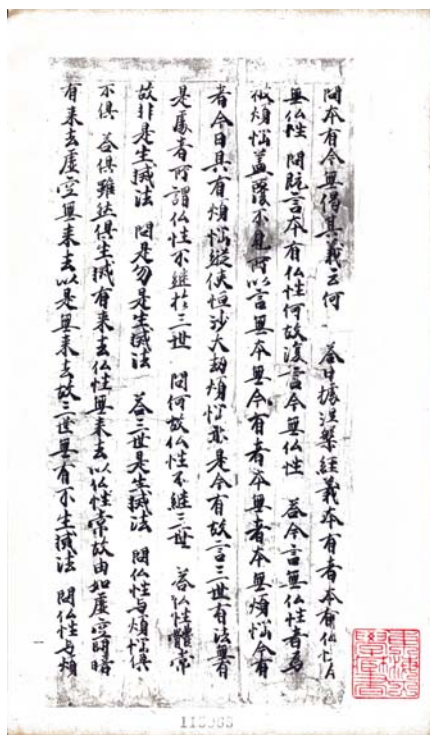 問本有今無偈其義云何 荅曰據涅槃經義本有者本有仏性今
無仏性 問既言本有仏性何故復言今無仏性 荅今言無仏性者為
被煩惱蓋覆不見所以言無本無今有者本無者本無煩惱今有
者今日具有煩惱縱使恒沙大劫煩惱亦是今有故言三世有法無有
是處者所謂仏性不継於三世 問何故仏性不継三世 荅仏性體常
故非是生滅法 問是勿是生滅法 荅三世是生滅法 問仏性与煩惱俱
不俱 荅俱雖然俱生滅有来去仏性無来去以仏性常故由如虚空明暗
有来去虚空無来去以是無来去故三世無有不生滅法 問仏性与煩